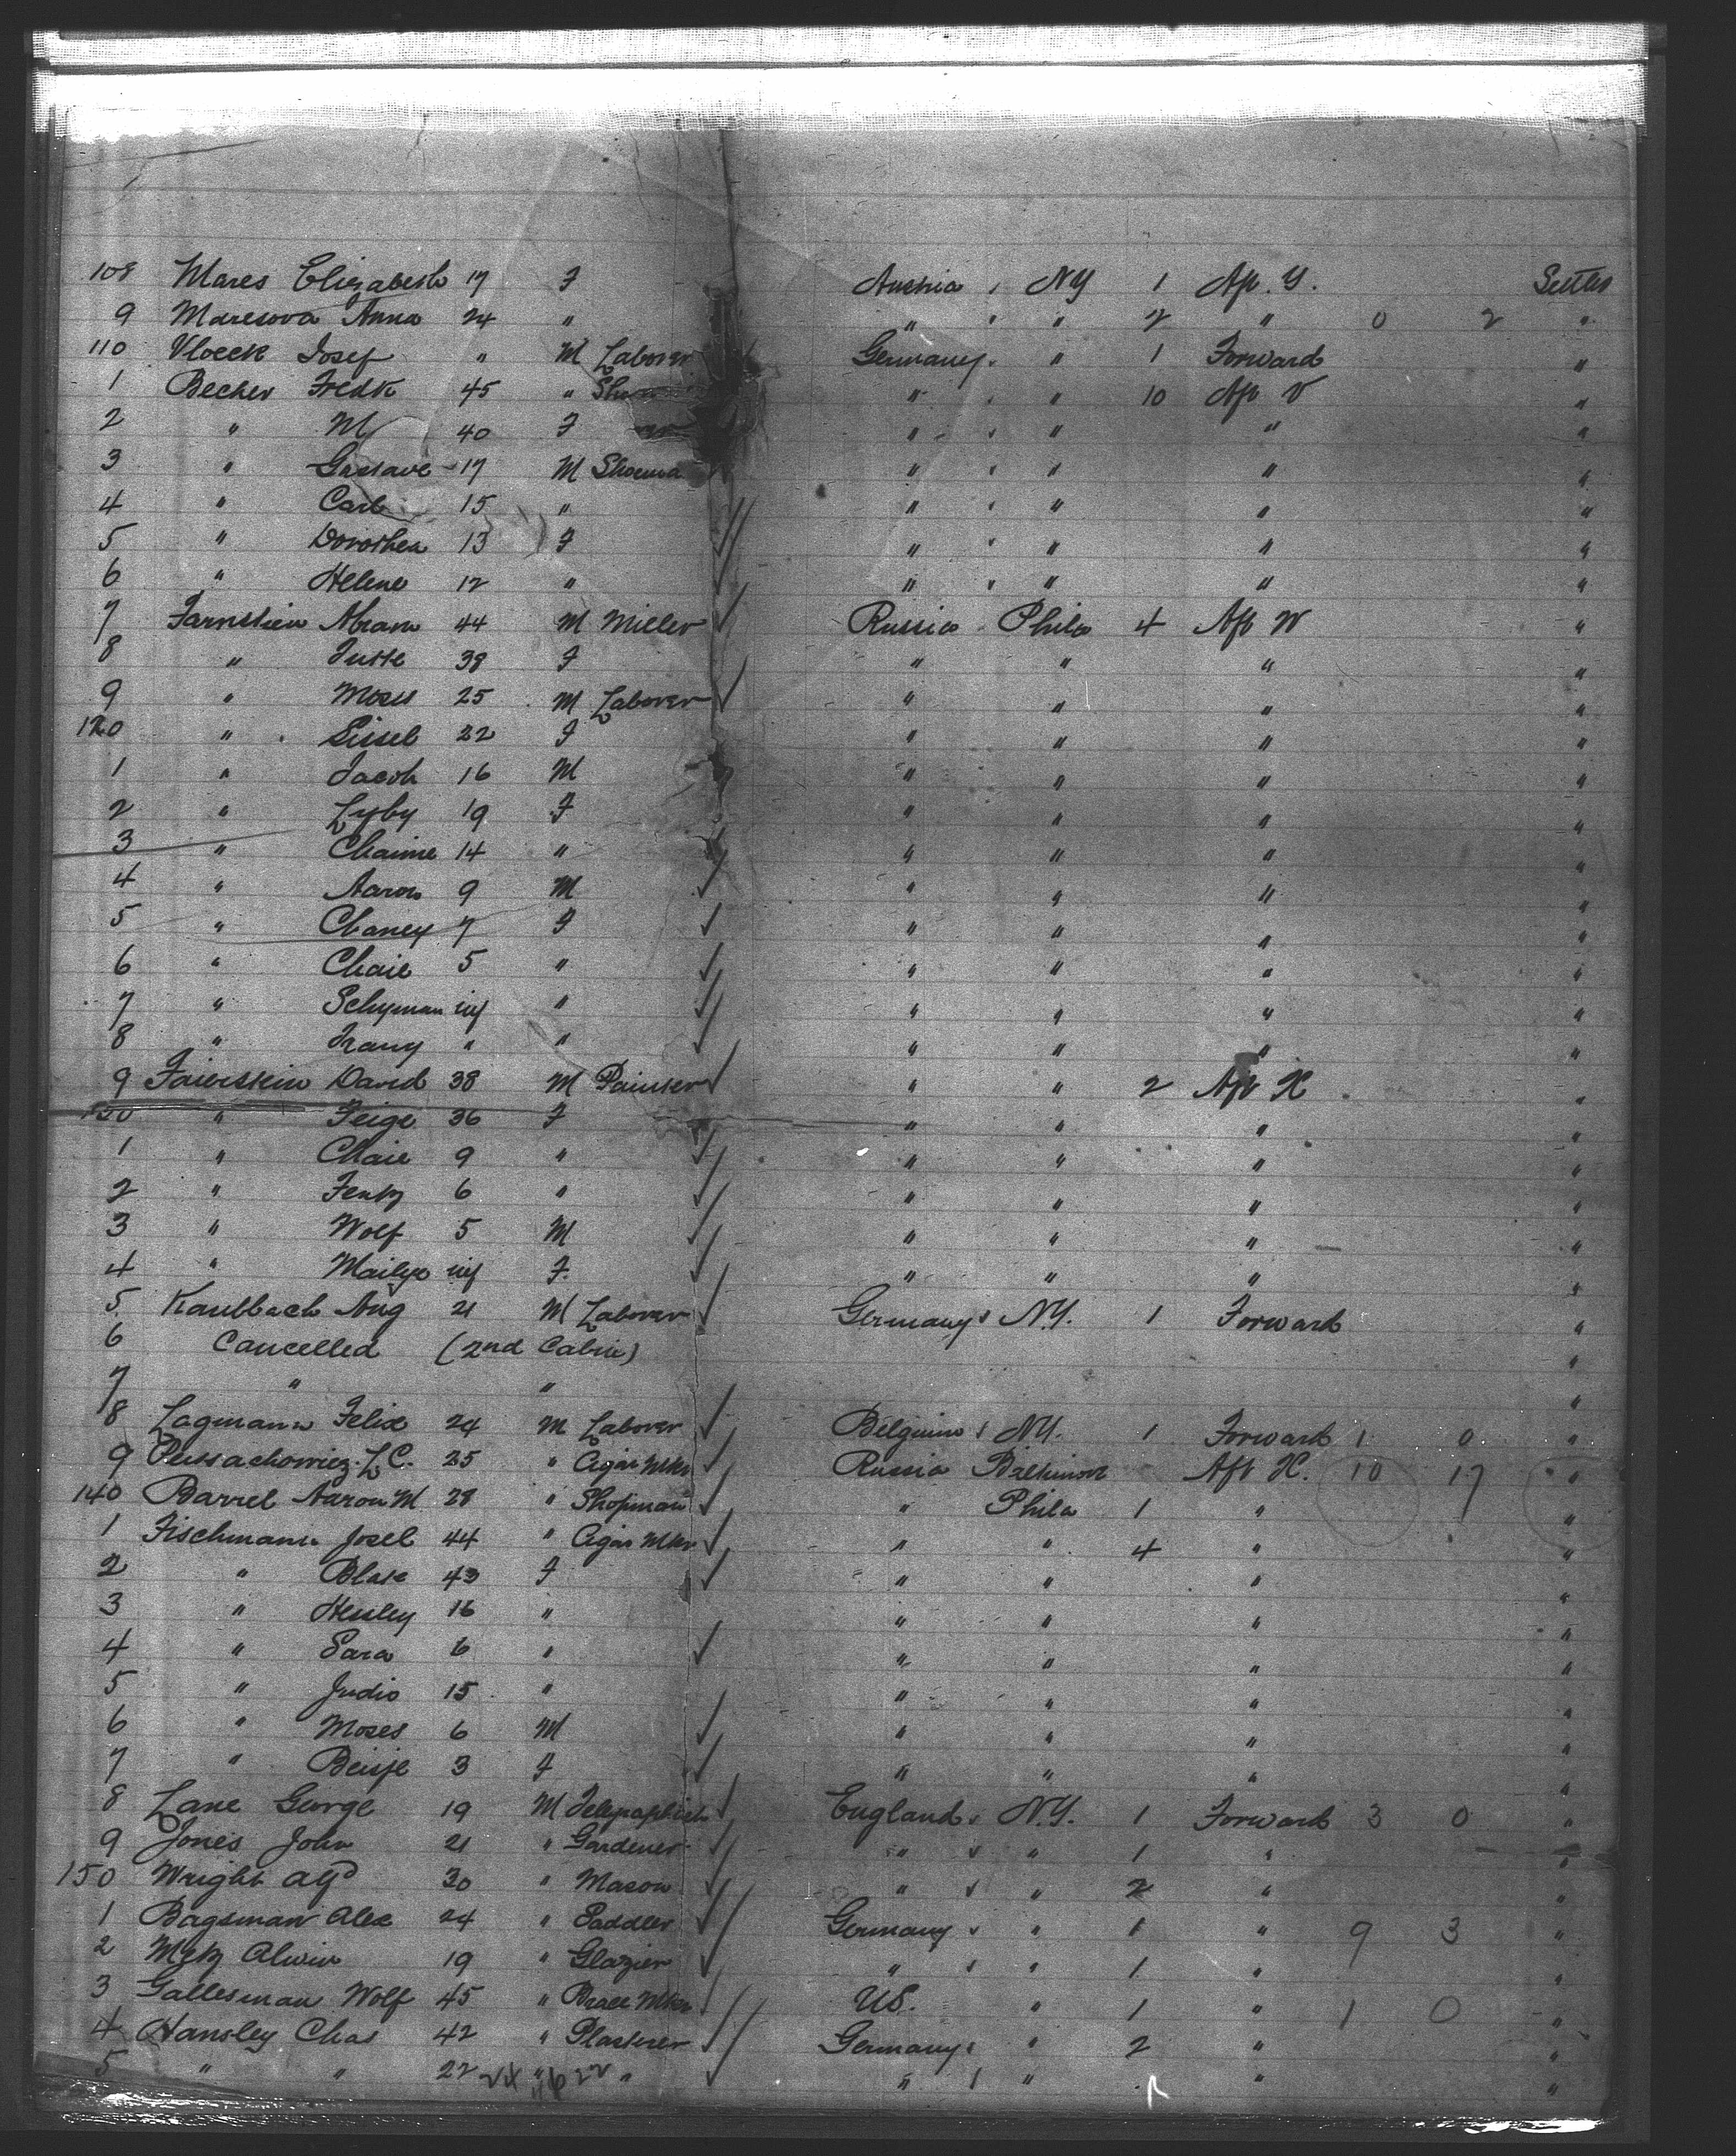 108 Mares Elizabeth 17 F Austria NY 1 Aft. Y. Settler
9 Maresova Anna 24 " " " 2 " 0 2 "
110 Vlocek Josef " M Laborer Germany " 1 Forward "
1 Becker Fredk 45 " " " 10 Aft V "
2 " M 40 F " " " "
3 " Gustave 17 M Shoema " " " "
4 " Carl 15 " " " " "
5 " Dorothea 13 F " " " "
6 " Helene 12 " " " " "
7 Farnstein Abram 44 M Miller Russia Phila 4 Aft W "
8 " Jutte 38 F " " " "
9 " Moses 25 M Laborer " " " "
120 " Sissel 22 F " " " "
1 " Jacob 16 M " " " "
2 " Lyby 19 F " " " "
3 " Chaime 14 " " " " "
4 " Aaron 9 M " " " "
5 " Chaney 7 F " " " "
6 " Chaie 5 " " " " "
7 " Schyman inf " " " " "
8 " " " " " " "
9 Faierstein David 38 M Painter " " 2 Aft X "
130 " Feige 36 F " " " "
1 " Chaie 9 " " " " "
2 " 6 " " " " "
3 " Wolf 5 M " " " "
4 " inf F. " " " "
5 Kaulbach Aug 21 M Laborer Germany N.Y. 1 Forward "
6 Cancelled (2nd Cabin) "
7 " " "
8 Lagmann Felix 24 M Laborer Belgium NY. 1 Forward 1 0 "
9 Peissachowicz L. C. 25 " Cigar Mkr Russia Baltimore Aft X. 10 17 "
140 Barrel Aaron M 28 " Shopman " Phila 1 " "
1 Fischmann Josel 44 " Cigar Mkr " " 4 " "
2 " Blase 43 F " " " "
3 " Hessley 16 " " " " "
4 " Sara 6 " " " " "
5 " Judio 15 " " " " "
6 " Moses 6 M " " " "
7 " Beisje 3 F " " " "
8 Lane George 19 M Telegraphist England N.Y. 1 Forward 3 0 "
9 Jones John 21 " Gardener " " 1 " "
150 Wright Alfd 30 " Mason " " 2 " "
1 Bagsman Alex 24 " Saddler Germany " 1 " 9 3 "
2 Metz Alwin 19 " Glazier " " 1 " "
3 Gallesman Wolf 45 " Brace Mkr US. " 1 " 1 0 "
4 Hansley Chas 42 " Plasterer Germany " 2 " "
5 " " 22 " " " " " "